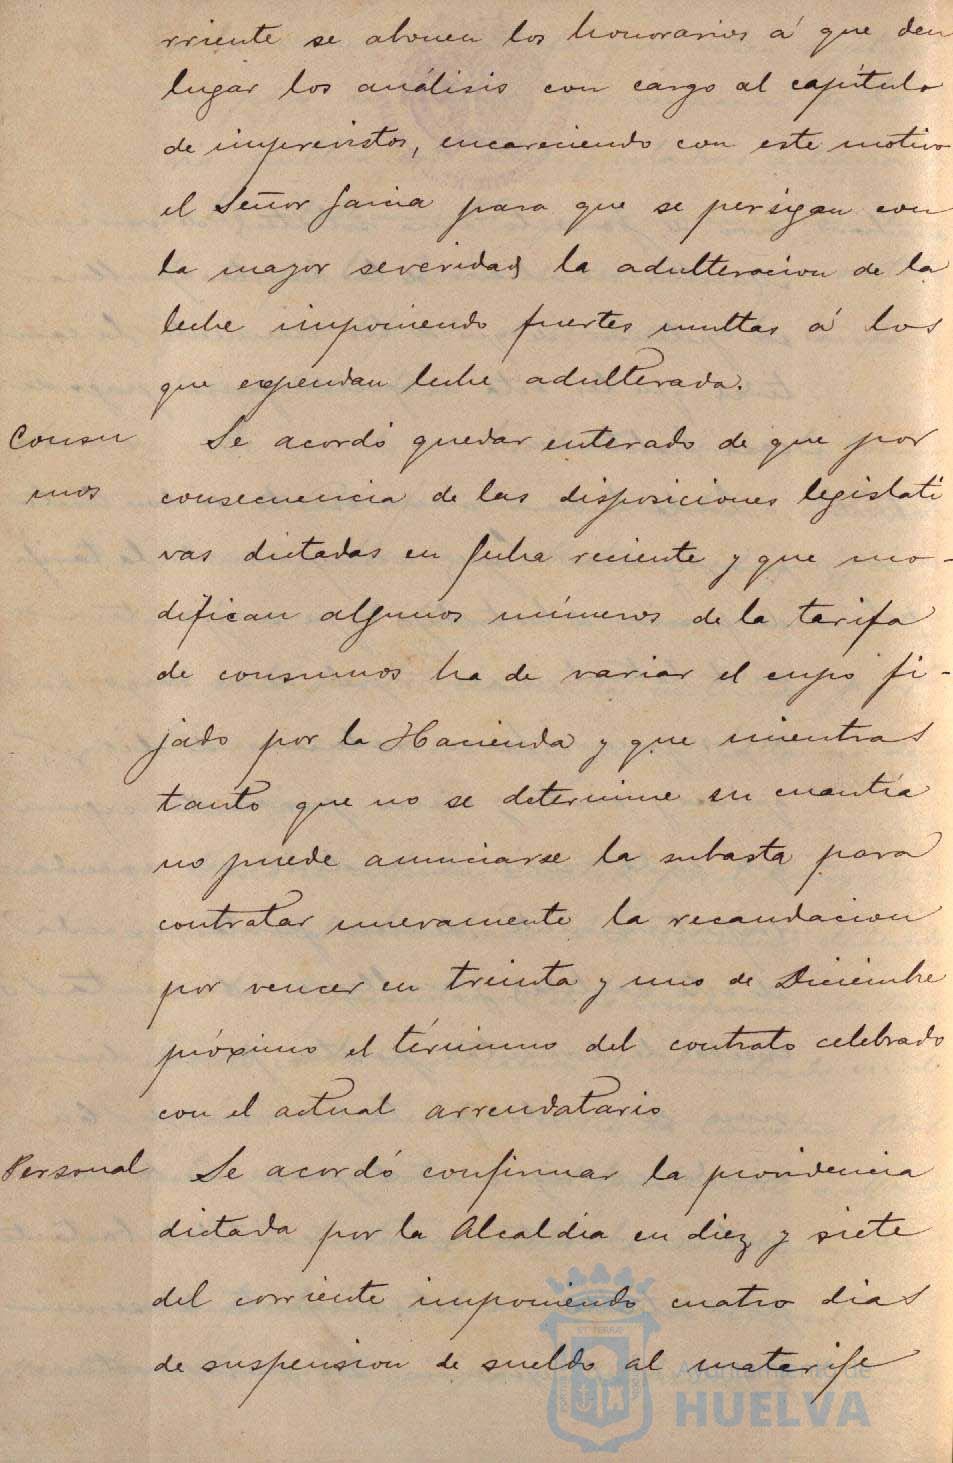 rriente se abonen los honorarios á que den
lugar los análisis con cargo al capítulo
de imprevistos, encareciendo con este motivo
el Señor García para que se persigan con
la mayor severidad la adulteracion de la
leche imponiendo fuertes multas á los
que expendan leche adulterada.
Consu Se acordó quedar enterado de que por
mos consecuencia de las disposiciones legislati
vas dictadas en fecha reciente y que mo-
difican algunos números de la tarifa
de consumos ha de variar el cupo fi-
jado por la Hacienda y que mientras
tanto que no se determine su cuantía
no puede anunciarse la subasta para
contratar nuevamente la recaudacion
por vencer en treinta y uno de Diciembre
próximo el término del contrato celebrado
con el actual arrendatario
Personal Se acordó confirmar la providencia
dictada por la Alcaldia en diez y siete
del corriente imponiendo cuatro dias
de suspension de sueldo al matarife
Ayuntamiento de
HUELVA